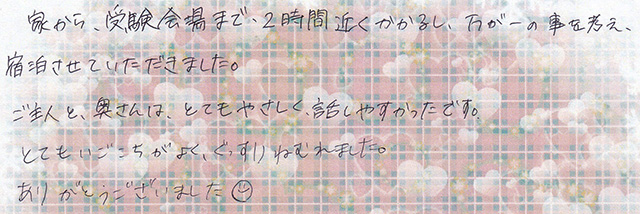 家から、受験会場まで、2時間近くかかるし、万が一の事を考え、
宿泊させていただきました。
ご主人と、奥さんは、とてもやさしく、話しやすかったです。
とてもいごこちがよく、ぐっすりねむれました。
ありがとうございました☺